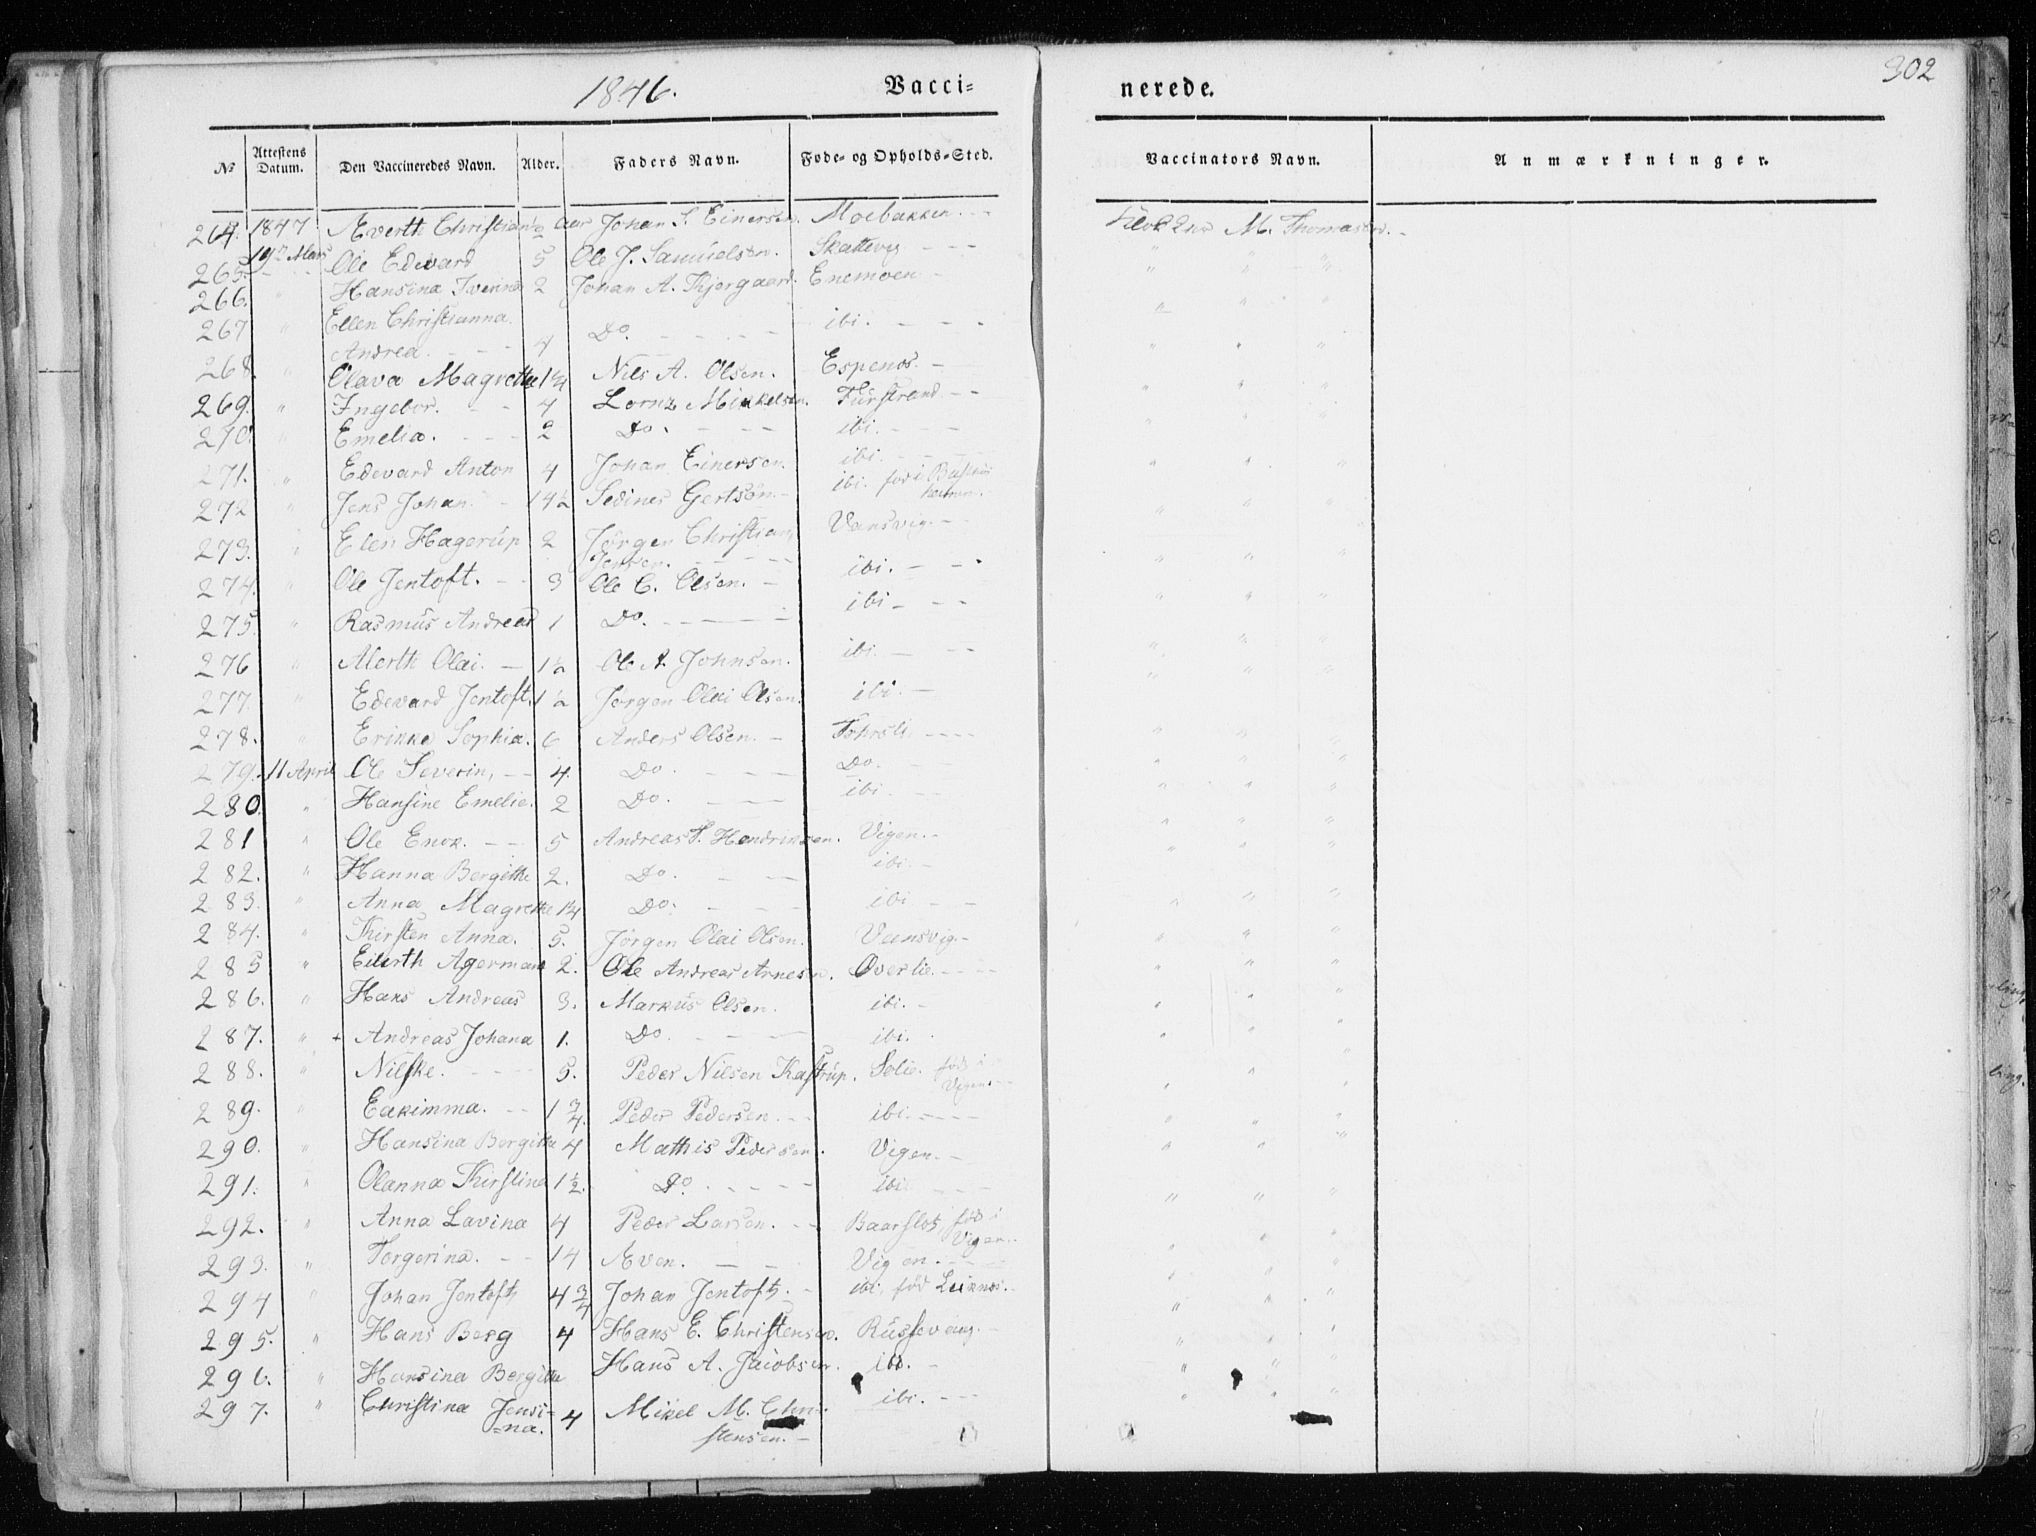 302
1846. Vacci= nerede.
No Attestens Datum. Den Vaccineredes Navn. Alder. Faders Navn. Føde- og Opholds-Sted. Vaccinators Navn. Anmærkninger.
264. 1847 Everth Christian ½ aar Johan S. Einersen. Moebakken. M. Thomassen.
19de Mars
265. Ole Edevard 5 Ole J. Samuelsen. Skattevig
266. " Hansina Iverina 2 Johan A. Kjergaard. Enemoen
267 " Ellen Christianna
Andrea. 4 Do. ibi.
268. " Olava Magrethe 1¾ Nils A. Olsen. Espenes.
269. " Ingebor. 4 Lornz Mikkelsen. Furstrand
270. " Emelia. 2 Do. ibi.
271. " Edevard Anton 4 Johan Einersen. ibi.
272 " Jens Johan 14½ Sedines Gertsøn. ibi. fød i
273. " Elen Hagerup 2 Jørgen Christian Vansvig.
Jensen.
274. " Ole Jentoft. 3 Ole C. Olsen. ibi.
275. " Rasmus Andreas 1 Do. ibi
276 " Merth Olai. 1½ Ole A. Johnsen. ibi.
277. " Edevard Jentoft. 1½ Jørgen Olai Olsen. ibi.
278. " Erikke Sophia. 6 Anders Olsen.
279. 11 April Ole Severin, 4. Do. Do.
280. " Hansine Emelie. 2 Do. ibi
281 " Ole Enok. 5 Andreas Hendriksen. Vigen.
282. " Hanna Bergitte 2. Do. ibi.
283. " Anna Magrethe 1¼ Do. ibi
284. " Kirsten Anna. 5. Jørgen Olai Olsen. Vansvig.
285 " Eilerth Agerman 2. Ole Andreas Arnesen. Overlie.
286. " Hans Andreas 3. Markus Olsen. ibi.
287. " + Andreas Johana 1. Do. ibi.
288. " Nilske. 5. Peder Nilsen Kastrup. Solie. fød i
Vigen.
289. " Eakimma. 1¾ Peder Pedersen. ibi.
290. " Hansina Bergitte 4 Mathis Pedersen. Vigen.
291. " Olanna Kirstina 1½. Do. ibi
292. " Anna Lavina 4 Peder Larsen. Baarslot, fød i
Vigen.
293. " Torgerina. 14 Even. Vigen.
294 " Johan Jentoft 4¾ Johan Jentoft. ibi, fød Leiknes.
295. " Hans Berg 4 Hans E. Christensen. Russevaag.
296. " Hansina Bergitte Hans A. Jacobsen. ibi.
297. " Christina Jensi= 4 Mikel M. Chri= ibi.
=na. stensen.